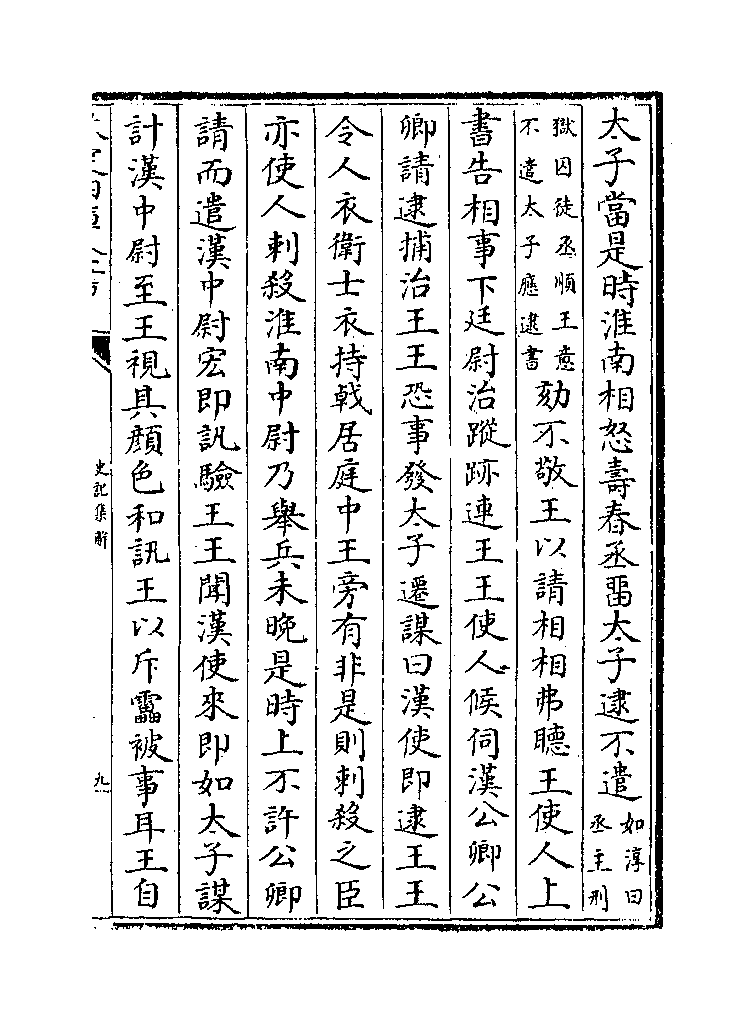 太子當是時淮南相怒壽春丞畱太子逮不遣
如淳曰
丞主刑
獄囚徒丞順王意
不遣太子應逮書
劾不敬王以請相相弗聽王使人上
書告相事下廷尉治蹤跡連王王使人候伺漢公卿公
卿請逮捕治王王恐事發太子遷謀曰漢使即逮王王
令人衣衛士衣持戟居庭中王旁有非是則刺殺之臣
亦使人刺殺淮南中尉乃舉兵未晚是時上不許公卿
請而遣漢中尉宏即訊驗王王聞漢使來即如太子謀
計漢中尉至王視其顔色和訊王以斥靁被事耳王自
史記集解
九